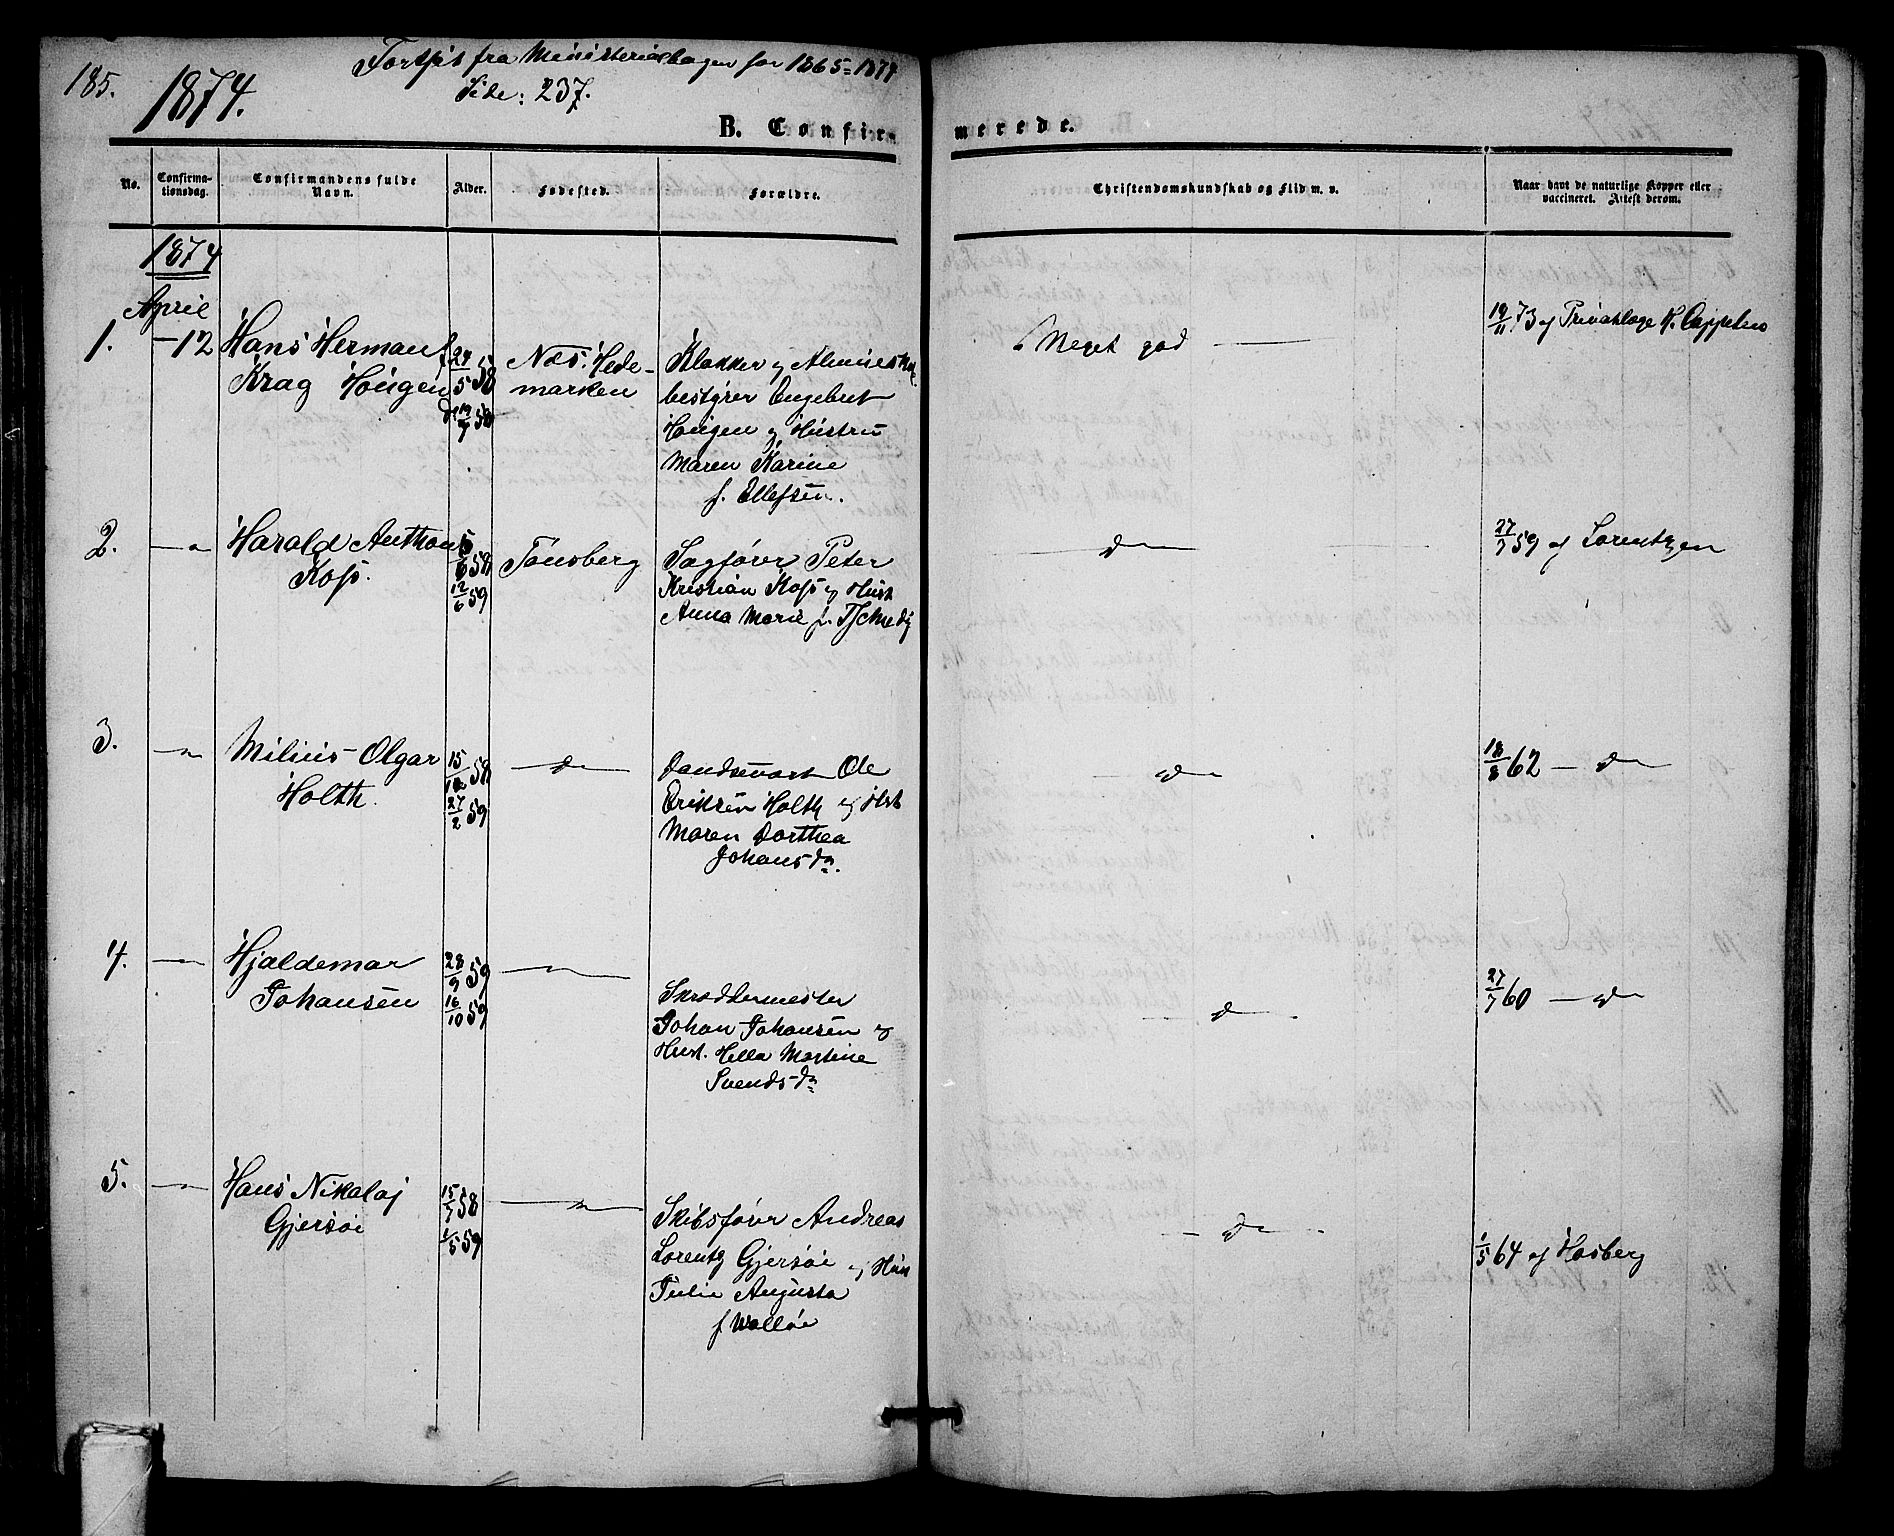 185.
Fortsat fra Ministerialbogen for 1865-1874
1874.
Side: 237.
B. Confirmerede.
No.
Confirmationsdag.
Confirmandens fulde Navn.
Alder.
Fødested.
Forældre.
Christendomskundskab og Flid m. v.
Naar havt de naturlige Kopper eller vaccineret. Attest derom.
1874
April
1.
12
Hans Herman
Krag Hougen
f. 24/5 58
d. 19/7 58
Næs. Hede-
marken
Klokker og
bestyrer Engebret
Hougen og Hustru
Maren Karine
f. Ellefsen.
Meget god
19/11 73 af Privatlæge H. Cappelen
2.
Harald Anthon
Koss.
5/6 58
12/6 59
Tønsberg
Sagfører Peter
Kristian Koss og Hust
Anna Marie f.
d
27/7 59 af Lorentzen
3.
Milius Olgar
Holth.
15/12 58
27/2 59
d
Landsmart Ole
Eriksen Holth og Hust
Maren Dorthea
Johansdn.
d
18/8 62 - d
4.
Hjaldemar
Johansen
28/9 59
16/10 59
Skræddermester
Johan Johansen og
Hust. Hella Martine
Svendsdn
d
27/7 60 - d
5.
Hans Nikolaj
Gjersøe
15/7 58
1/5 59
Skibsfører Andreas
Lorentz Gjersøe og Hust
Julie Augusta
f Walløe
d
1/5 64 af Hasberg